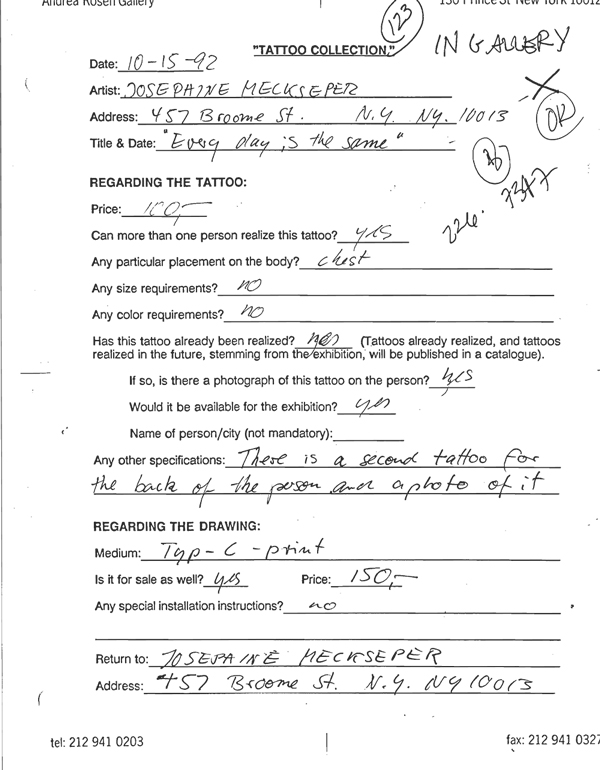 Andrea Rosen Gallery 130 Prince St New York 10012
123
IN GALLERY
"TATTOO COLLECTION,"
Date: 10-15-92
X
OK
Artist: JOSEPAINE MECKSEPER
Address: 457 Broome St. N.Y. NY. 10013
Title & Date: "Every day is the same" -
226. 7347
REGARDING THE TATTOO:
Price: 100,-
Can more than one person realize this tattoo? yes
Any particular placement on the body? chest
Any size requirements? no
Any color requirements? no
Has this tattoo already been realized? yes (Tattoos already realized, and tattoos
realized in the future, stemming from the exhibition, will be published in a catalogue).
If so, is there a photograph of this tattoo on the person? yes
Would it be available for the exhibition? yes
Name of person/city (not mandatory):
Any other specifications: There is a second tattoo for
the back of the person and a photo of it
REGARDING THE DRAWING:
Medium: Typ-C-print
Is it for sale as well? yes Price: 150,-
Any special installation instructions? no
Return to: JOSEPAINE MECKSEPER
Address: 457 Broome St. N.Y. NY 10013
tel: 212 941 0203 fax: 212 941 0327